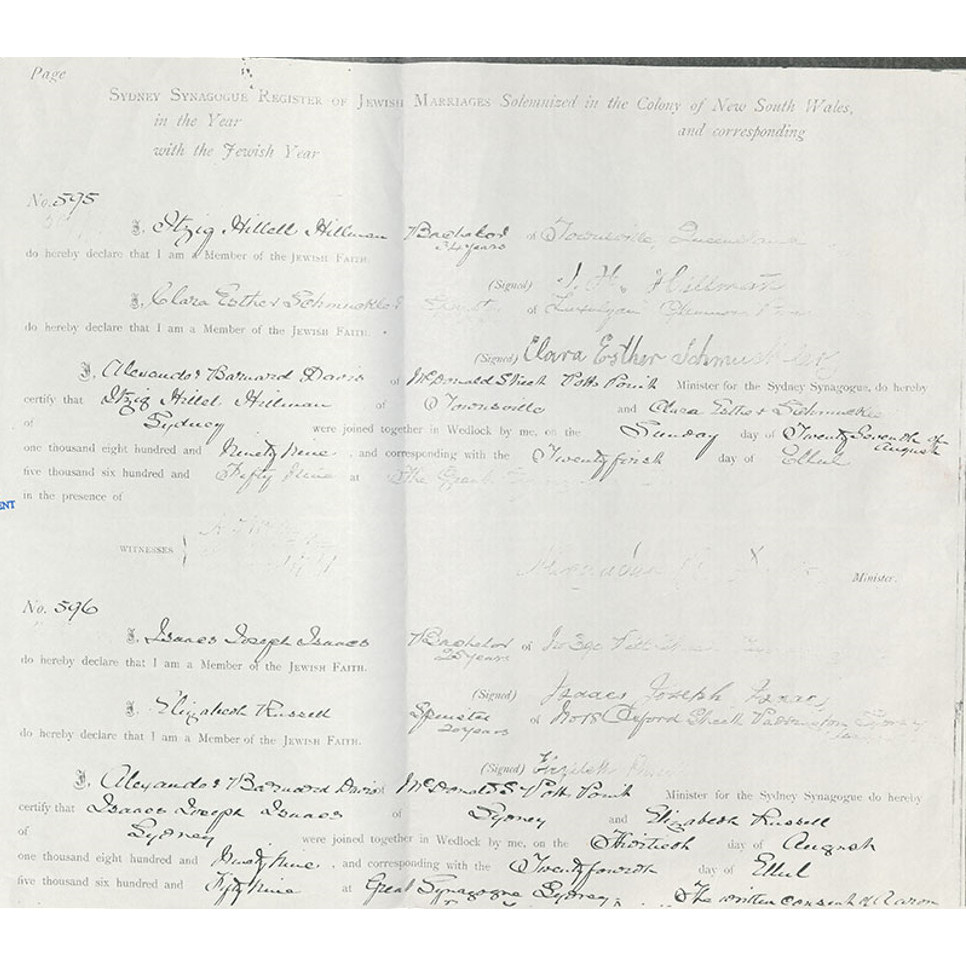 Page
SYDNEY SYNAGOGUE REGISTER OF JEWISH MARRIAGES Solemnized in the Colony of New South Wales,
in the Year and corresponding
with the Jewish Year
No. 595
I, Itzig Hillell Hillman Bachelor of Townsville, Queensland
34 years
do hereby declare that I am a Member of the JEWISH FAITH.
(Signed) I. H. Hillman
I, Clara Esther Schmuckler of
do hereby declare that I am a Member of the JEWISH FAITH.
(Signed) Clara Esther Schmuckler
I, Alexander Barnard Davis of McDonald Street Potts Point Minister for the Sydney Synagogue, do hereby
certify that Itzig Hillel Hillman of Townsville and Clara Esther Schmuckler
of Sydney were joined together in Wedlock by me, on the Sunday day of Twenty Seventh of August
one thousand eight hundred and Ninety Nine, and corresponding with the Twenty first day of Ellul
five thousand six hundred and Fifty Nine at The Great
in the presence of
ENT
WITNESSES
Minister.
No. 596
I, Isaacs Joseph Isaacs Bachelor of No 392 Pitt
25 years
do hereby declare that I am a Member of the JEWISH FAITH.
(Signed) Isaacs Joseph Isaacs
I, Elizabeth Russell Spinster of No 18 Oxford Street Paddington Sydney
20 years
do hereby declare that I am a Member of the JEWISH FAITH.
(Signed) Elizabeth
I, Alexander Barnard Davis of McDonald St Potts Point Minister for the Sydney Synagogue do hereby
certify that Isaacs Joseph Isaacs of Sydney and Elizabeth Russell
of Sydney were joined together in Wedlock by me, on the Thirtieth day of August
one thousand eight hundred and Ninety Nine, and corresponding with the Twenty fourth day of Ellul
five thousand six hundred and Fifty Nine at Great Synagogue Sydney. The written consent of Aaron